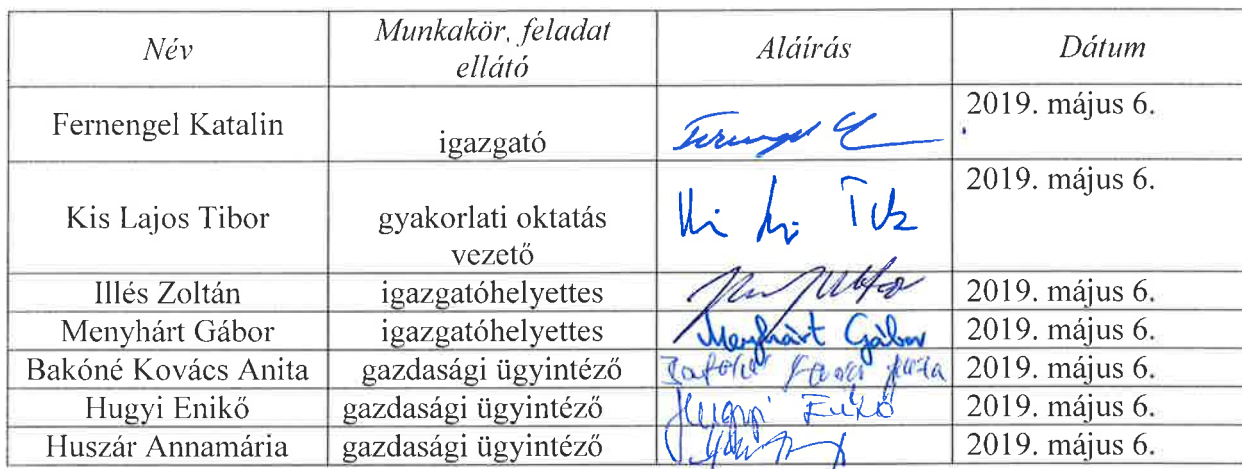 Név Munkakör, feladat ellátó Aláírás Dátum
Fernengel Katalin igazgató 2019. május 6.
Kis Lajos Tibor gyakorlati oktatás vezető 2019. május 6.
Illés Zoltán igazgatóhelyettes 2019. május 6.
Menyhárt Gábor igazgatóhelyettes Menyhárt Gábor 2019. május 6.
Bakóné Kovács Anita gazdasági ügyintéző 2019. május 6.
Hugyi Enikő gazdasági ügyintéző Hugyi Enikő 2019. május 6.
Huszár Annamária gazdasági ügyintéző 2019. május 6.